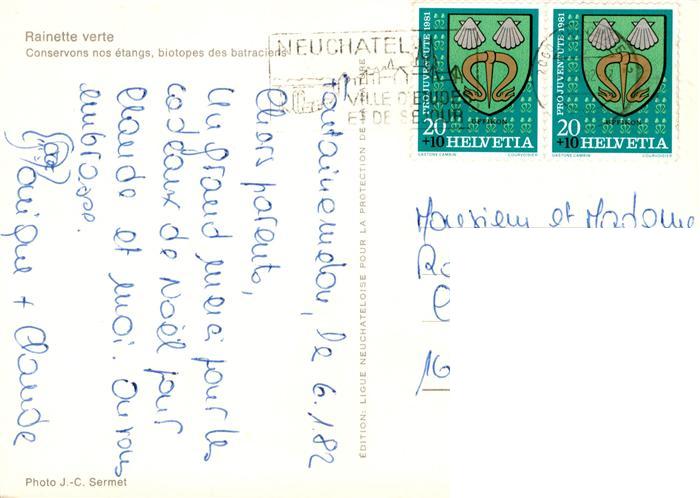 Rainette verte
Conservons nos étangs, biotopes des batraciens
NEUCHATEL
VILLE D'ETUDES
ET DE SEJOUR
PRO JUVENTUTE 1981
OPFIKON
20
+10 HELVETIA
GASTONE CAMBIN
COURVOISIER
PRO JUVENTUTE 1981
OPFIKON
20
+10 HELVETIA
GASTONE CAMBIN
COURVOISIER
Fontainemelon, le 6.1.82
Chers parents,
Un grand merci pour les
cadeaux de Noël pour
Claude et moi. On vous
embrasse.
+ Claude
ÉDITION: LIGUE NEUCHATELOISE POUR LA PROTECTION DE LA NATURE
Monsieur et Madame
16
Photo J.-C. Sermet